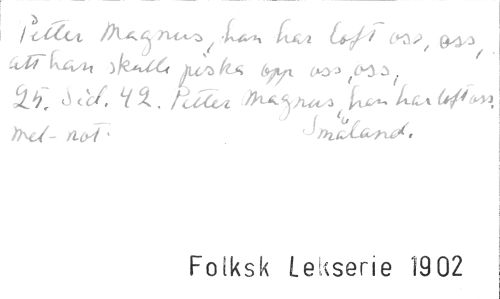 Petter Magnus, han har loft oss, oss,
att han skulle piska opp oss, oss,
25. Sid. 42. Petter Magnus, han har loft oss.
mel-not. Småland.
Folksk Lekserie 1902